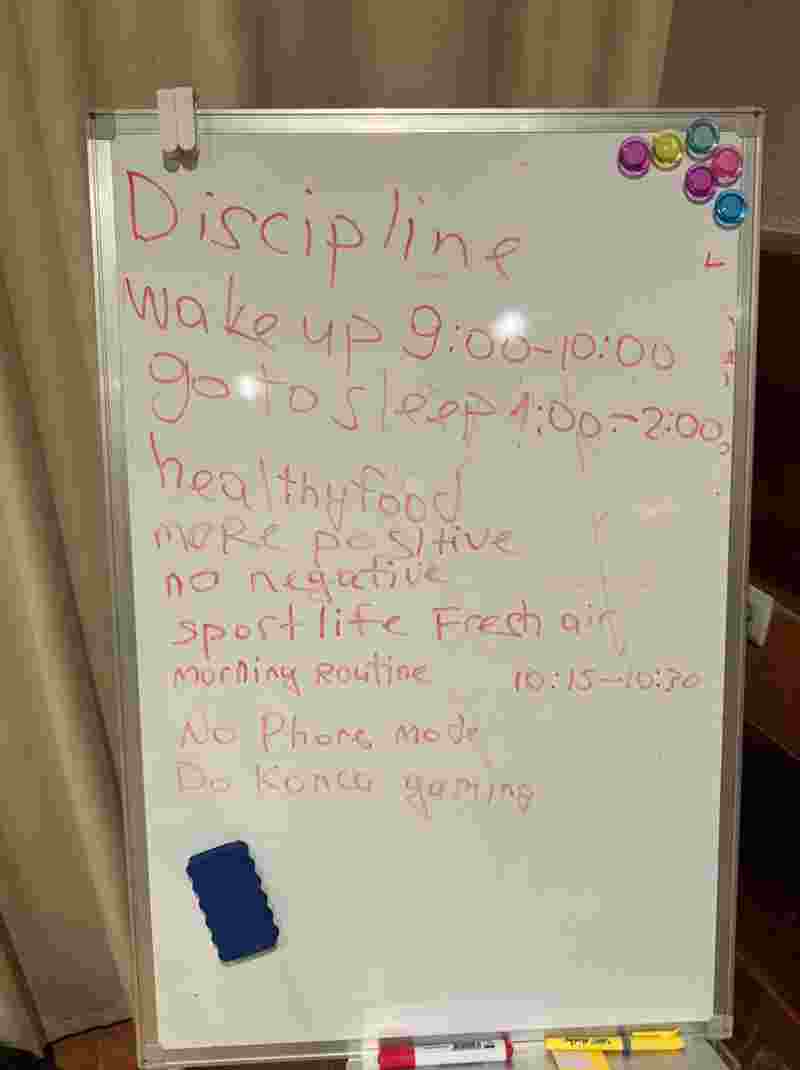 Discipline
wake up 9:00-10:00
go to sleep 1:00-2:00
healthy food
more positive
no negative
sport life Fresh air
morning Routine 10:15-10:30
No Phone mode
Do Konca gaming